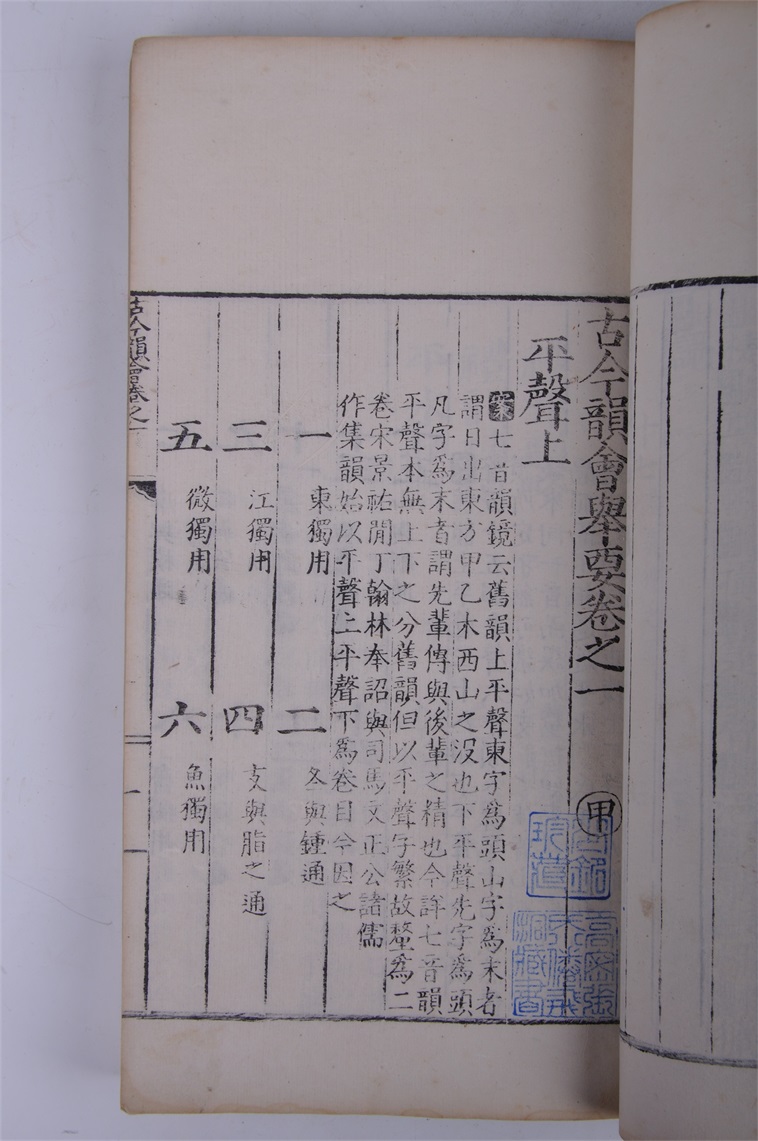 古今韻會舉要卷之一 甲
平聲上
七音韻鏡云舊韻上平聲東字為頭山字為末者
謂日出東方甲乙木西山之没也下平聲先字為頭
凡字為末者謂先輩傳與後輩之精也今詳七音韻
平聲本無上下之分舊韻但以平聲字繁故釐為二
卷宋景祐閒丁翰林奉詔與司馬文正公諸儒
作集韻始以平聲上平聲下為卷目今因之
一 東獨用 二 冬與鍾通
三 江獨用 四 支與脂之通
五 微獨用 六 魚獨用
古今韻會卷之一
一